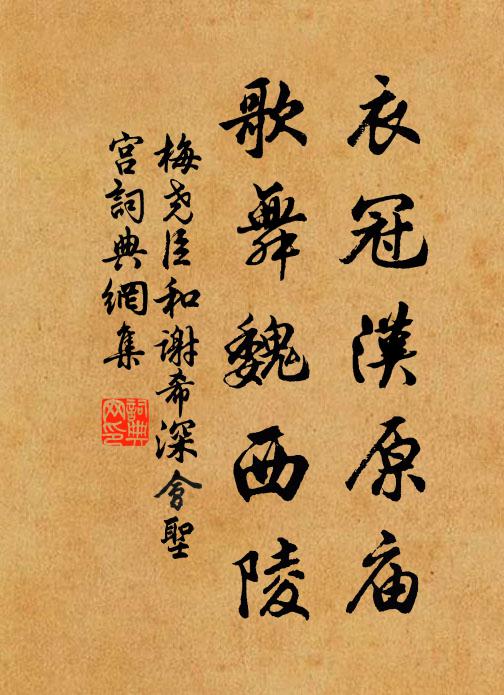 衣冠漢原庙
歌舞魏西陵
梅尧臣和谢希深會聖
宮詞典網集
詞典
网印